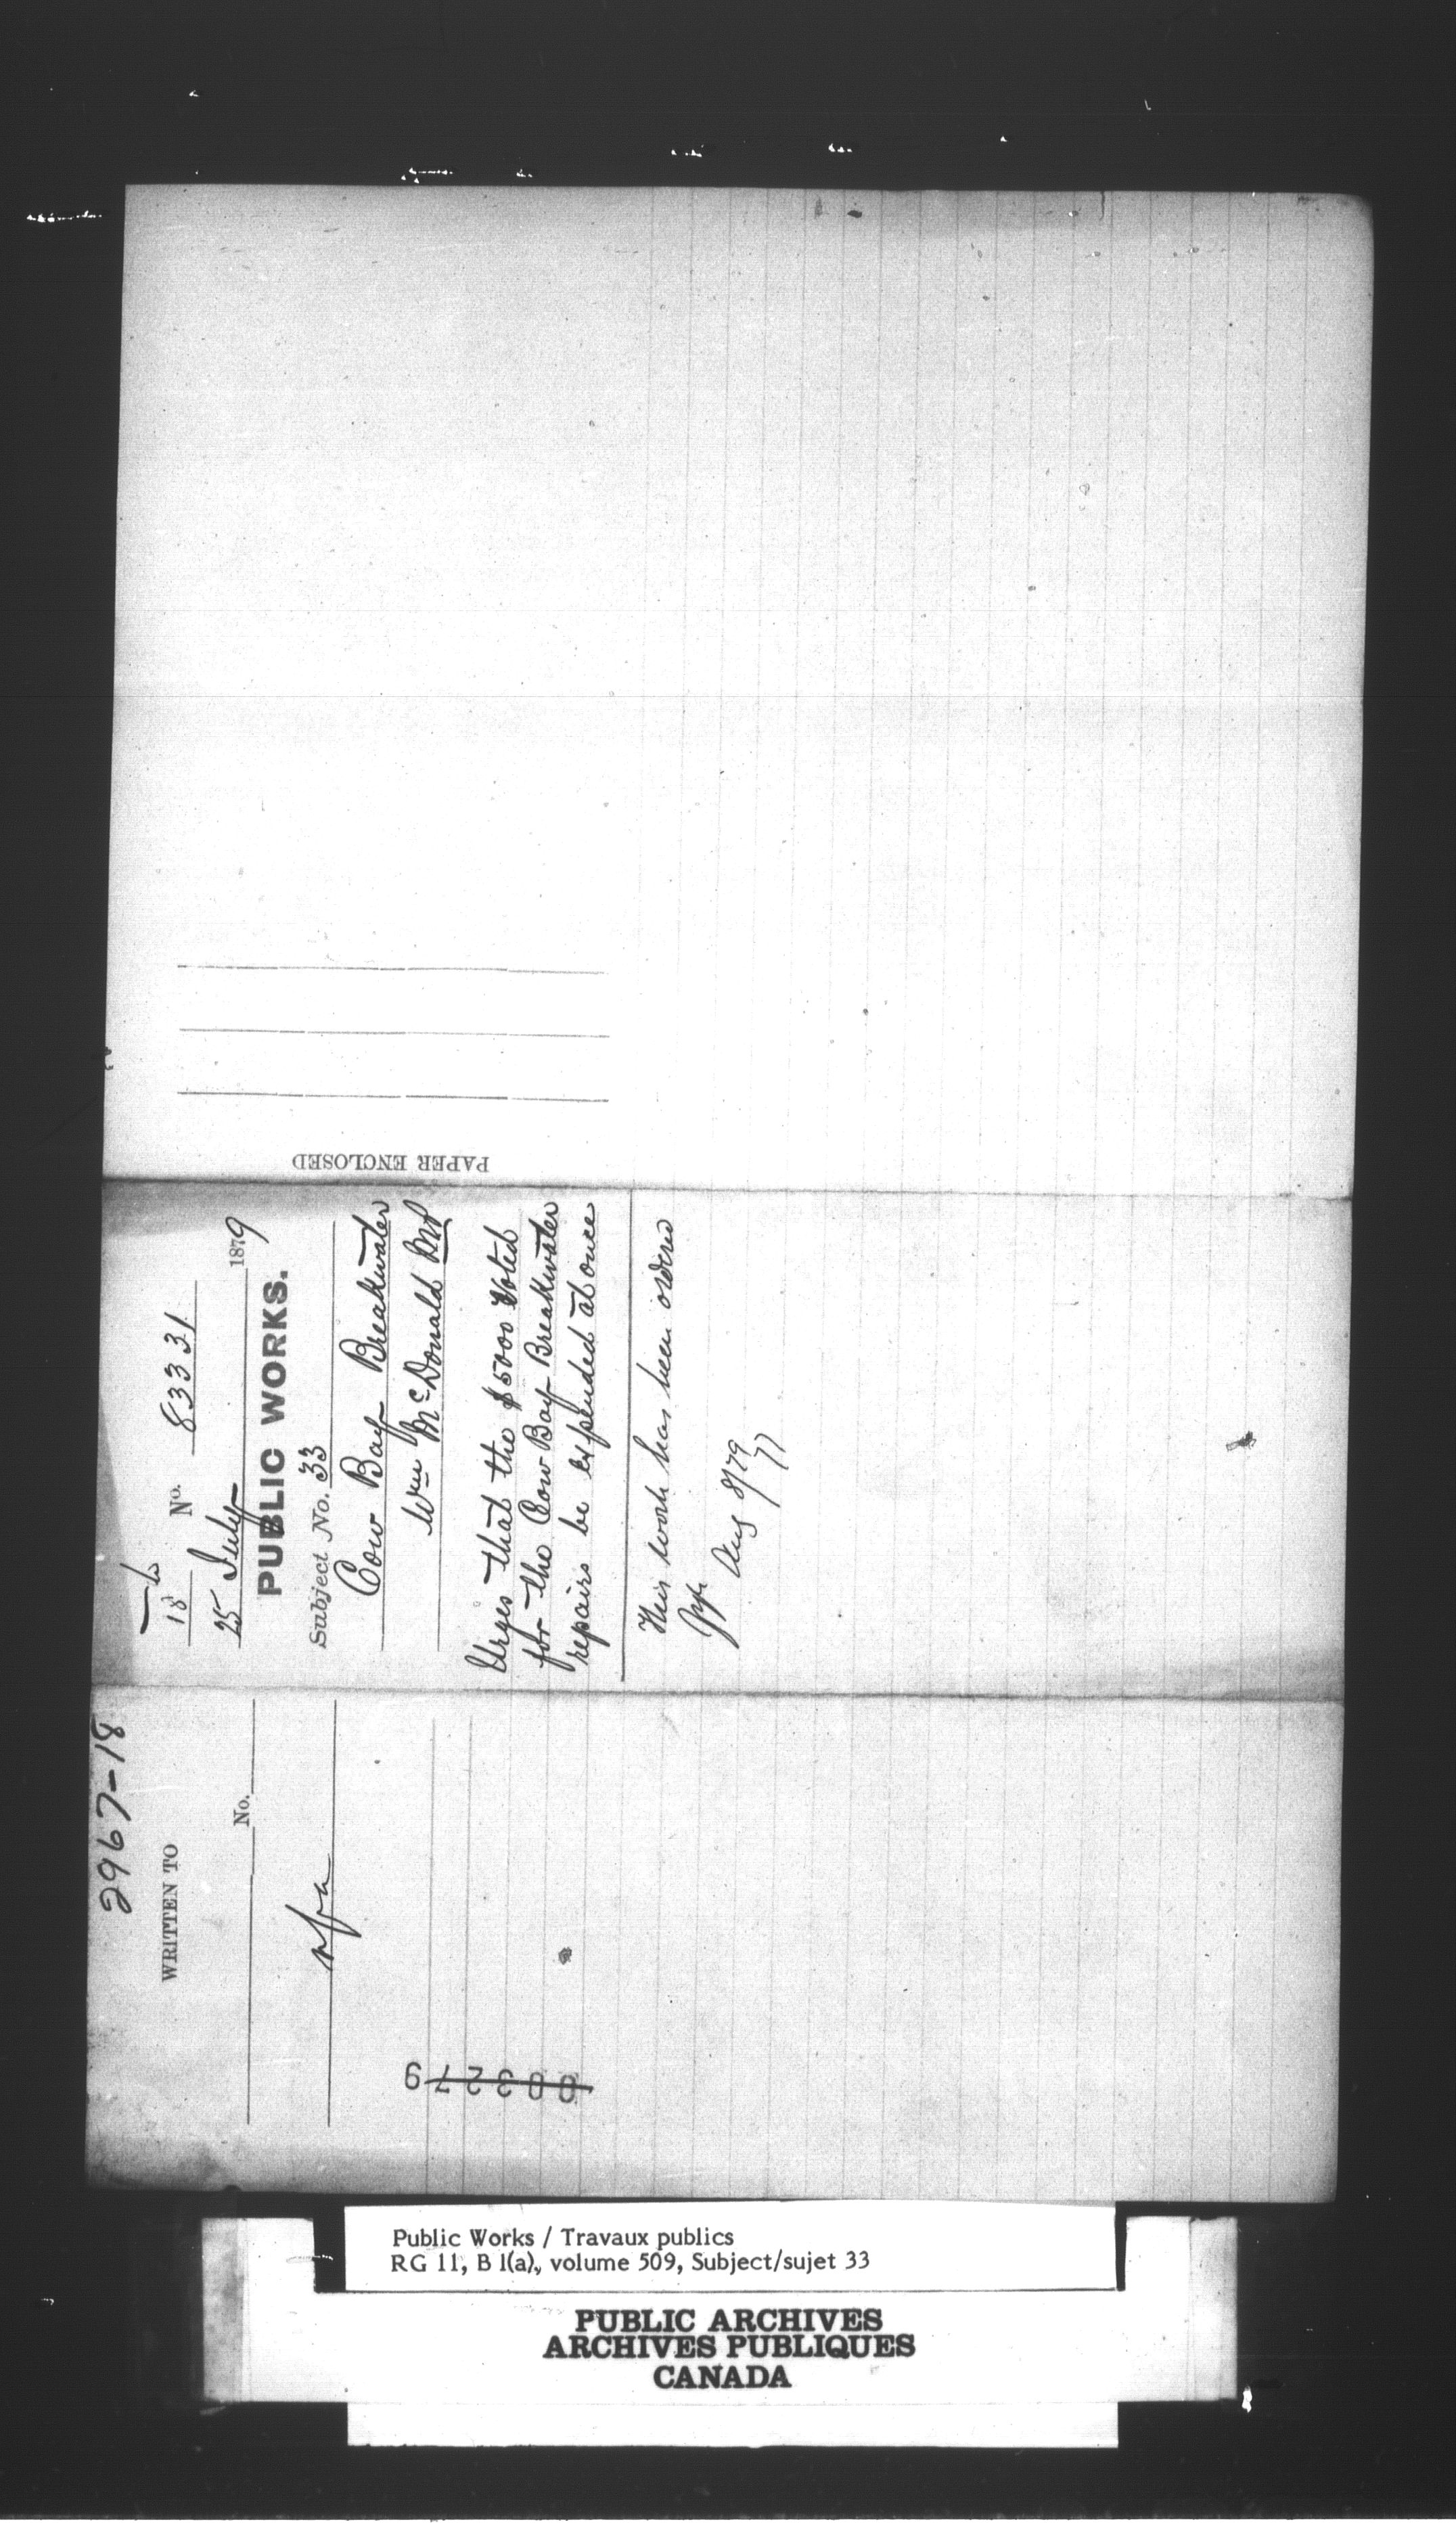 2967-18
WRITTEN TO
No.
18
No. 83331.
25 July 1879
PUBLIC WORKS.
Subject No. 33
Cow Bay Breakwater
Wm McDonald MP
Urges that the $5000 voted
for the Cow Bay Breakwater
repairs be expended at once
This work has been ordered
Aug 8/79
77
PAPER ENCLOSED
Public Works / Travaux publics
RG 11, B 1(a), volume 509, Subject/sujet 33
PUBLIC ARCHIVES
ARCHIVES PUBLIQUES
CANADA